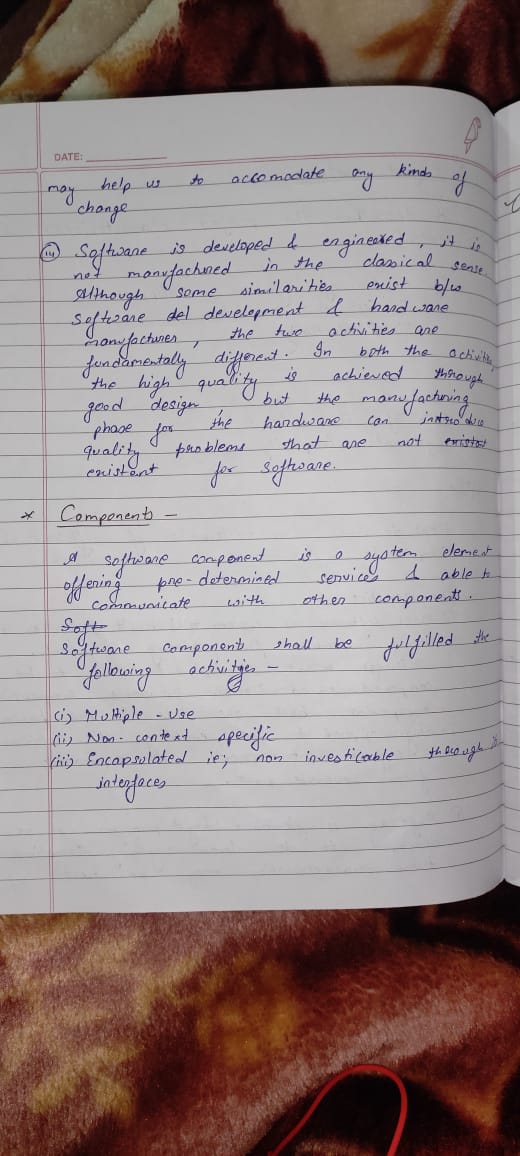 DATE:
may help us to accomodate any kinds of
change
(iv) Software is developed & engineered, it is
not manufactured in the classical sense
Although some similarities exist b/w
software del development & hardware
manufactures, the two activities are
fundamentally different. In both the activities
the high quality is achieved through
good design but the manufacturing
phase for the hardware can introduce
quality problems that are not existat
existent for software.
* Components -
A software component is a system element
offering pre-determined services & able to
communicate with other components.
Soft
Software components shall be fulfilled the
following activities -
(i) Multiple - Use
(ii) Non-context specific
(iii) Encapsulated ie; non investicable through
interfaces